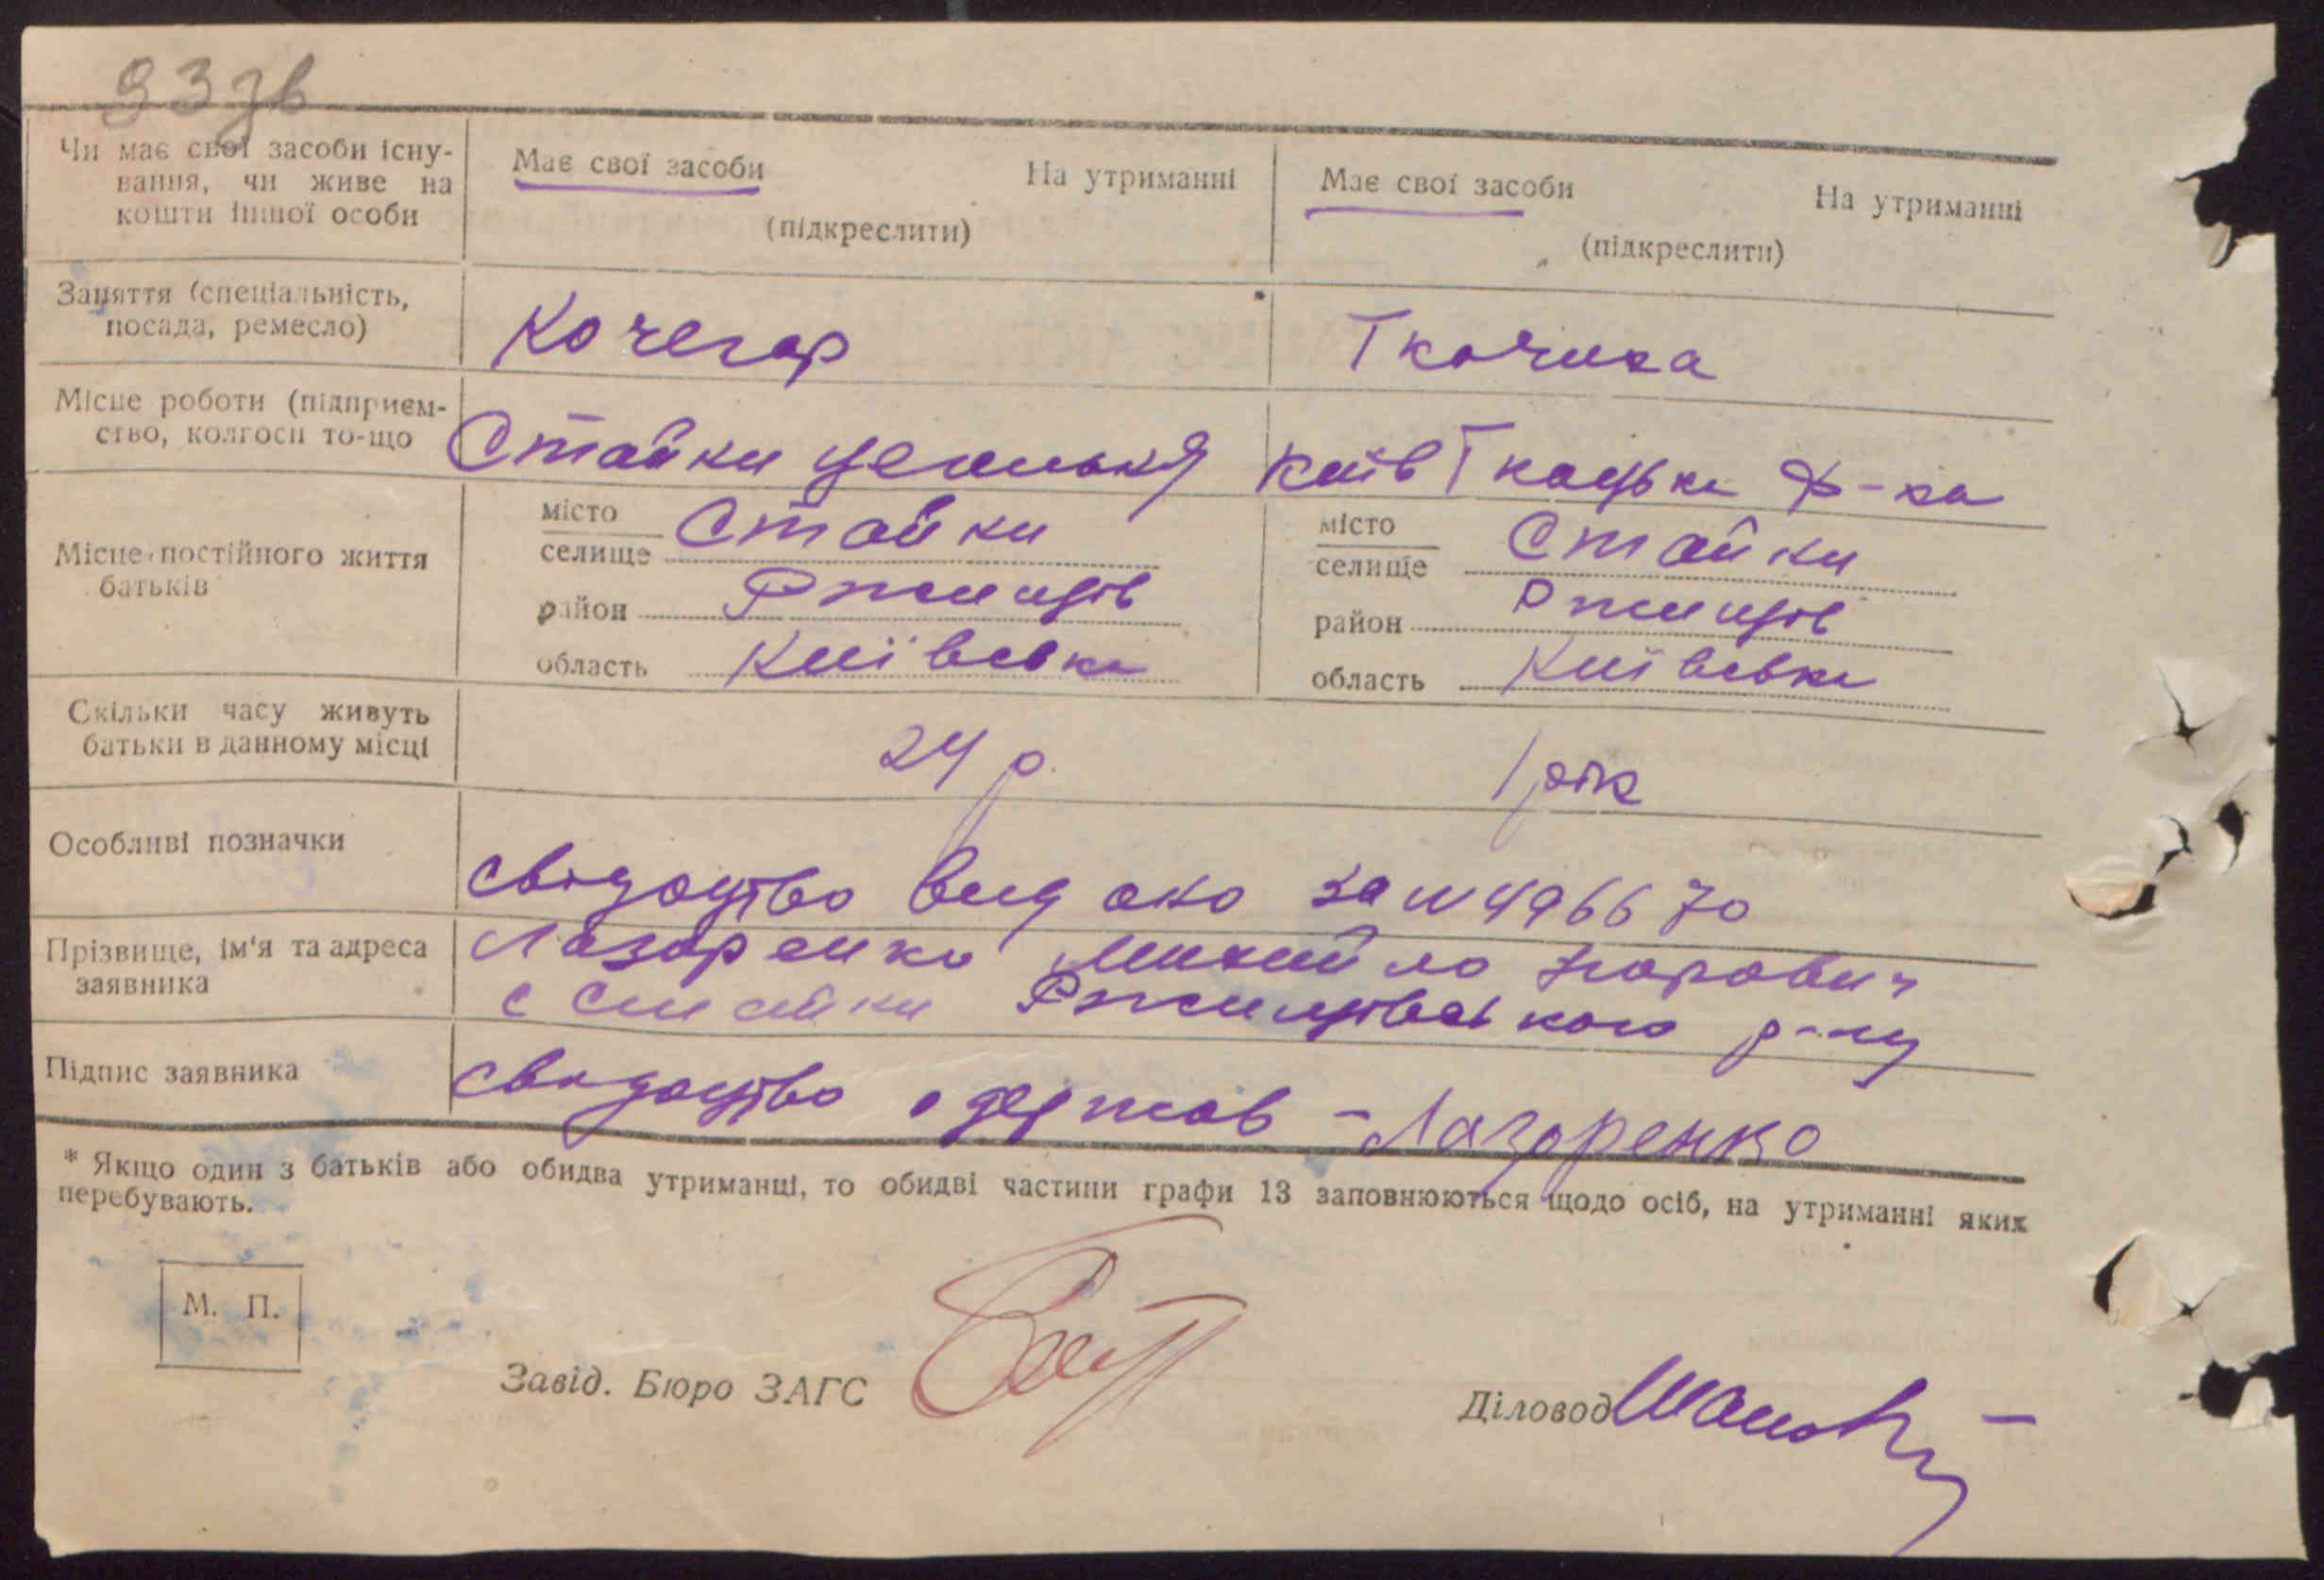 93зв
Чи має свої засоби існу-
вання, чи живе на
кошти іншої особи
Має свої засоби На утриманні
(підкреслити)
Має свої засоби На утриманні
(підкреслити)
Заняття (спеціальність,
посада, ремесло)
Кочегар
Ткачиха
Місце роботи (підприєм-
ство, колгосп то-що
Стайки
Київ Ткацька Ф-ка
Місце постійного життя
батьків
місто
селище Стайки
район Ржищів
область Київська
місто
селище Стайки
район Ржищів
область Київська
Скільки часу живуть
батьки в данному місці
24 р
1 рік
Особливі позначки
свідоцтво видано за N 496670
Прізвище, ім'я та адреса
заявника
Лазаренко Михайло
с Стайки Ржищівського р-ну
Підпис заявника
свідоцтво одержав - Лазоренко
* Якщо один з батьків або обидва утриманці, то обидві частини графи 13 заповнюються щодо осіб, на утриманні яких
перебувають.
М. П.
Завід. Бюро ЗАГС
Діловод